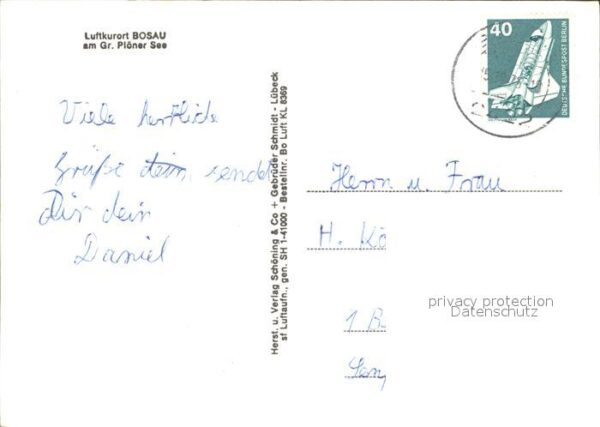 Luftkurort BOSAU
am Gr. Plöner See
Viele herzliche
Grüße dein sendet
Dir dein
Daniel
Herst. u. Verlag Schöning & Co + Gebrüder Schmidt - Lübeck
sf Luftaufn., gen. SH 1-41000 - Bestellnr. Bo Luft KL 8369
40
DEUTSCHE BUNDESPOST BERLIN
Herrn u. Frau
H. Kö
1 B
privacy protection
Datenschutz